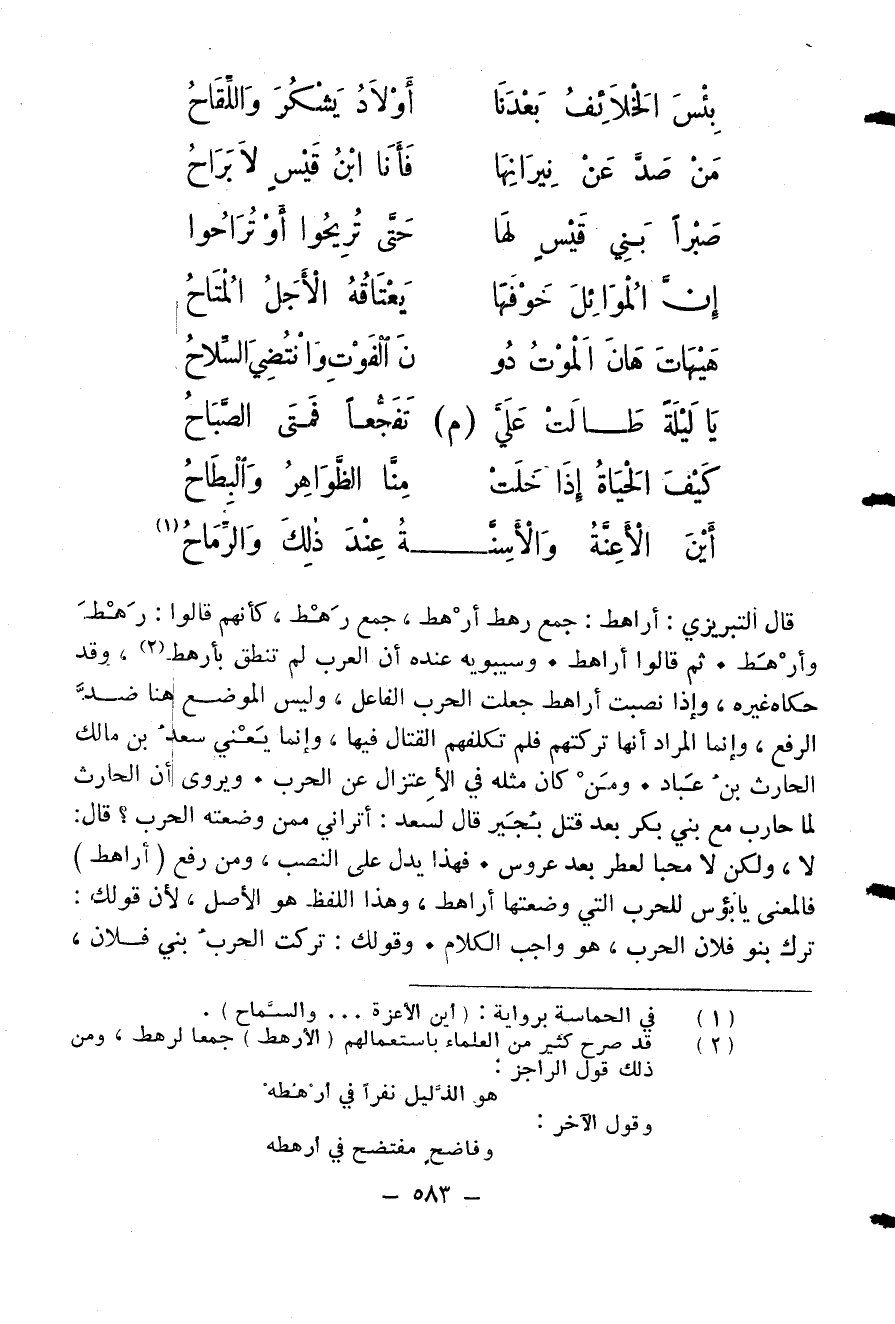 بِئْسَ الْخَلاَئِفُ بَعْدَنَا أَوْلاَدُ يَشْكُرَ وَاللِّقَاحُ
مَنْ صَدَّ عَنْ نِيرَانِهَا فَأَنَا ابْنُ قَيْسٍ لاَ بَرَاحُ
صَبْراً بَنِي قَيْسٍ لَهَا حَتَّى تُرِيحُوا أَوْ تُرَاحُوا
إِنَّ الْمُوَائِلَ خَوْفَهَا يَعْتَاقُهُ الْأَجَلُ الْمُتَاحُ
هَيْهَاتَ هَانَ الْمَوْتُ دُو نَ الْفَوْتِ وَانْتُضِيَ السِّلَاحُ
يَا لَيْلَةً طَالَتْ عَلَيَّ (م) تَفَجُّعاً فَمَتَى الصَّبَاحُ
كَيْفَ الْحَيَاةُ إِذَا خَلَتْ مِنَّا الظَّوَاهِرُ وَالْبِطَاحُ
أَيْنَ الْأَعِنَّةُ وَالْأَسِنَّــةُ عِنْدَ ذٰلِكَ وَالرِّمَاحُ (١)
قال التبريزي : أراهط : جمع رهط أرْهط ، جمع رَهْط ، كأنهم قالوا : رَهْطَ
وأرْهَط ٠ ثم قالوا أراهط ٠ وسيبويه عنده أن العرب لم تنطق بأرهط (٢) ، وقد
حكاه غيره ، وإذا نصبت أراهط جعلت الحرب الفاعل ، وليس الموضع هنا ضدَّ
الرفع ، وإنما المراد أنها تركتهم فلم تكلفهم القتال فيها ، وإنما يَعْني سعدُ بن مالك
الحارث بنُ عبَاد ٠ ومَنْ كان مثله في الأعتزال عن الحرب ٠ ويروى أن الحارث
لما حارب مع بني بكر بعد قتل بُجَير قال لسعد : أتراني ممن وضعته الحرب ؟ قال:
لا ، ولكن لا مخبا لعطر بعد عروس ٠ فهذا يدل على النصب ، ومن رفع ( أراهط )
فالمعنى يابُؤس للحرب التي وضعتها أراهط ، وهذا اللفظ هو الأصل ، لأن قولك :
ترك بنو فلان الحرب ، هو واجب الكلام ٠ وقولك : تركت الحربُ بني فلان ،
(١) في الحماسة برواية : ( أين الأعزة ... والسَّماح ) .
(٢) قد صرح كثير من العلماء باستعمالهم ( الأرهط ) جمعا لرهط ، ومن
ذلك قول الراجز :
هو الذَّليل نفراً في أرْهُطهْ
وقول الآخر :
وفاضحٍ مفتضح في أرهطه
– ٥٨٣ –